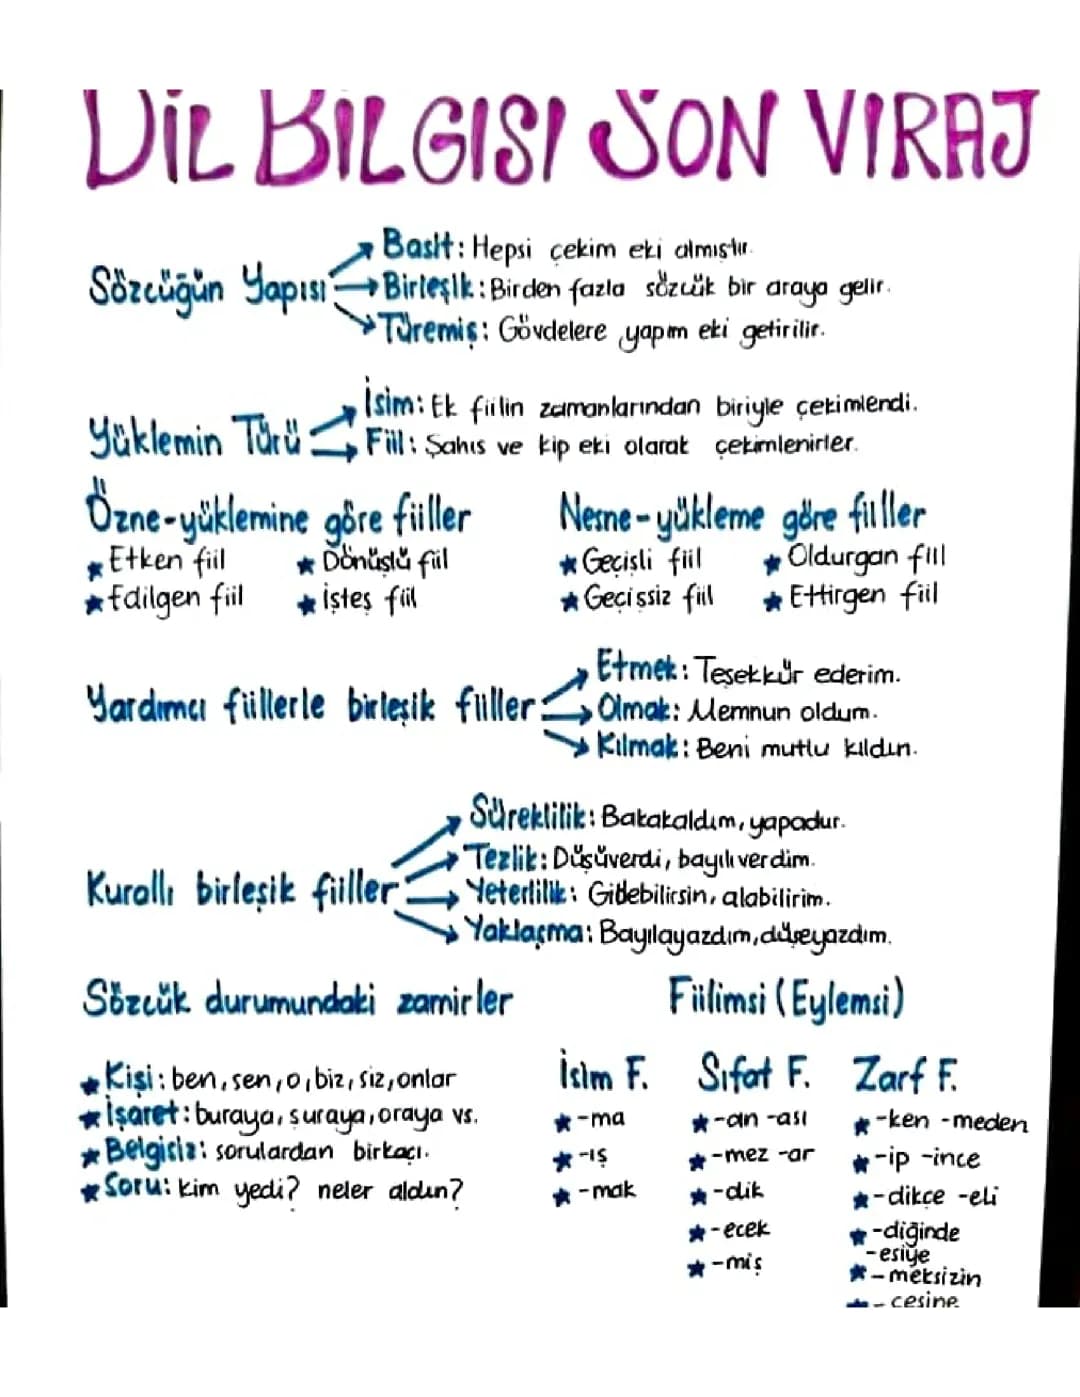 DİL BİLGİSİ SON VİRAJ
Sözcüğün Yapısı
Basit: Hepsi çekim eki almıştır.
Birleşik: Birden fazla sözcük bir araya gelir.
Türemiş: Gövdelere yapım eki getirilir.
Yüklemin Türü
İsim: Ek fiilin zamanlarından biriyle çekimlendi.
Fiil: Şahıs ve kip eki olarak çekimlenirler.
Özne-yüklemine göre fiiller
★ Etken fiil ★ Dönüşlü fiil
★ Edilgen fiil ★ İşteş fiil
Nesne-yükleme göre fiiller
★ Geçişli fiil ★ Oldurgan fiil
★ Geçişsiz fiil ★ Ettirgen fiil
Yardımcı fiillerle birleşik fiiller
Etmek: Teşekkür ederim.
Olmak: Memnun oldum.
Kılmak: Beni mutlu kıldın.
Kurallı birleşik fiiller
Süreklilik: Bakakaldım, yapadur.
Tezlik: Düşüverdi, bayılıverdim.
Yeterlilik: Gidebilirsin, alabilirim.
Yaklaşma: Bayılayazdım, düşeyazdım.
Sözcük durumundaki zamirler
★ Kişi: ben, sen, o, biz, siz, onlar
★ İşaret: buraya, şuraya, oraya vs.
★ Belgisiz: sorulardan birkaçı.
★ Soru: kim yedi? neler aldın?
Fiilimsi (Eylemsi)
İsim F.
★ -ma
★ -ış
★ -mak
Sıfat F.
★ -an -ası
★ -mez -ar
★ -dik
★ -ecek
★ -miş
Zarf F.
★ -ken -meden
★ -ip -ince
★ -dikçe -eli
★ -diğinde
-esiye
★ -meksizin
★ - cesine